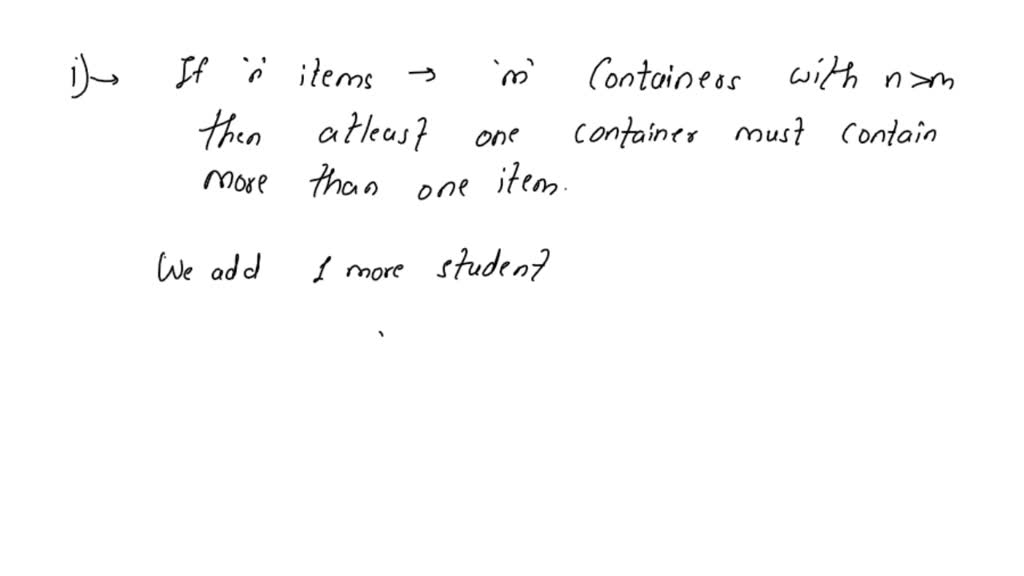 i)→ If 'n' items → 'm' Containers with n>m
then atleast one container must contain
more than one item.
We add 1 more student